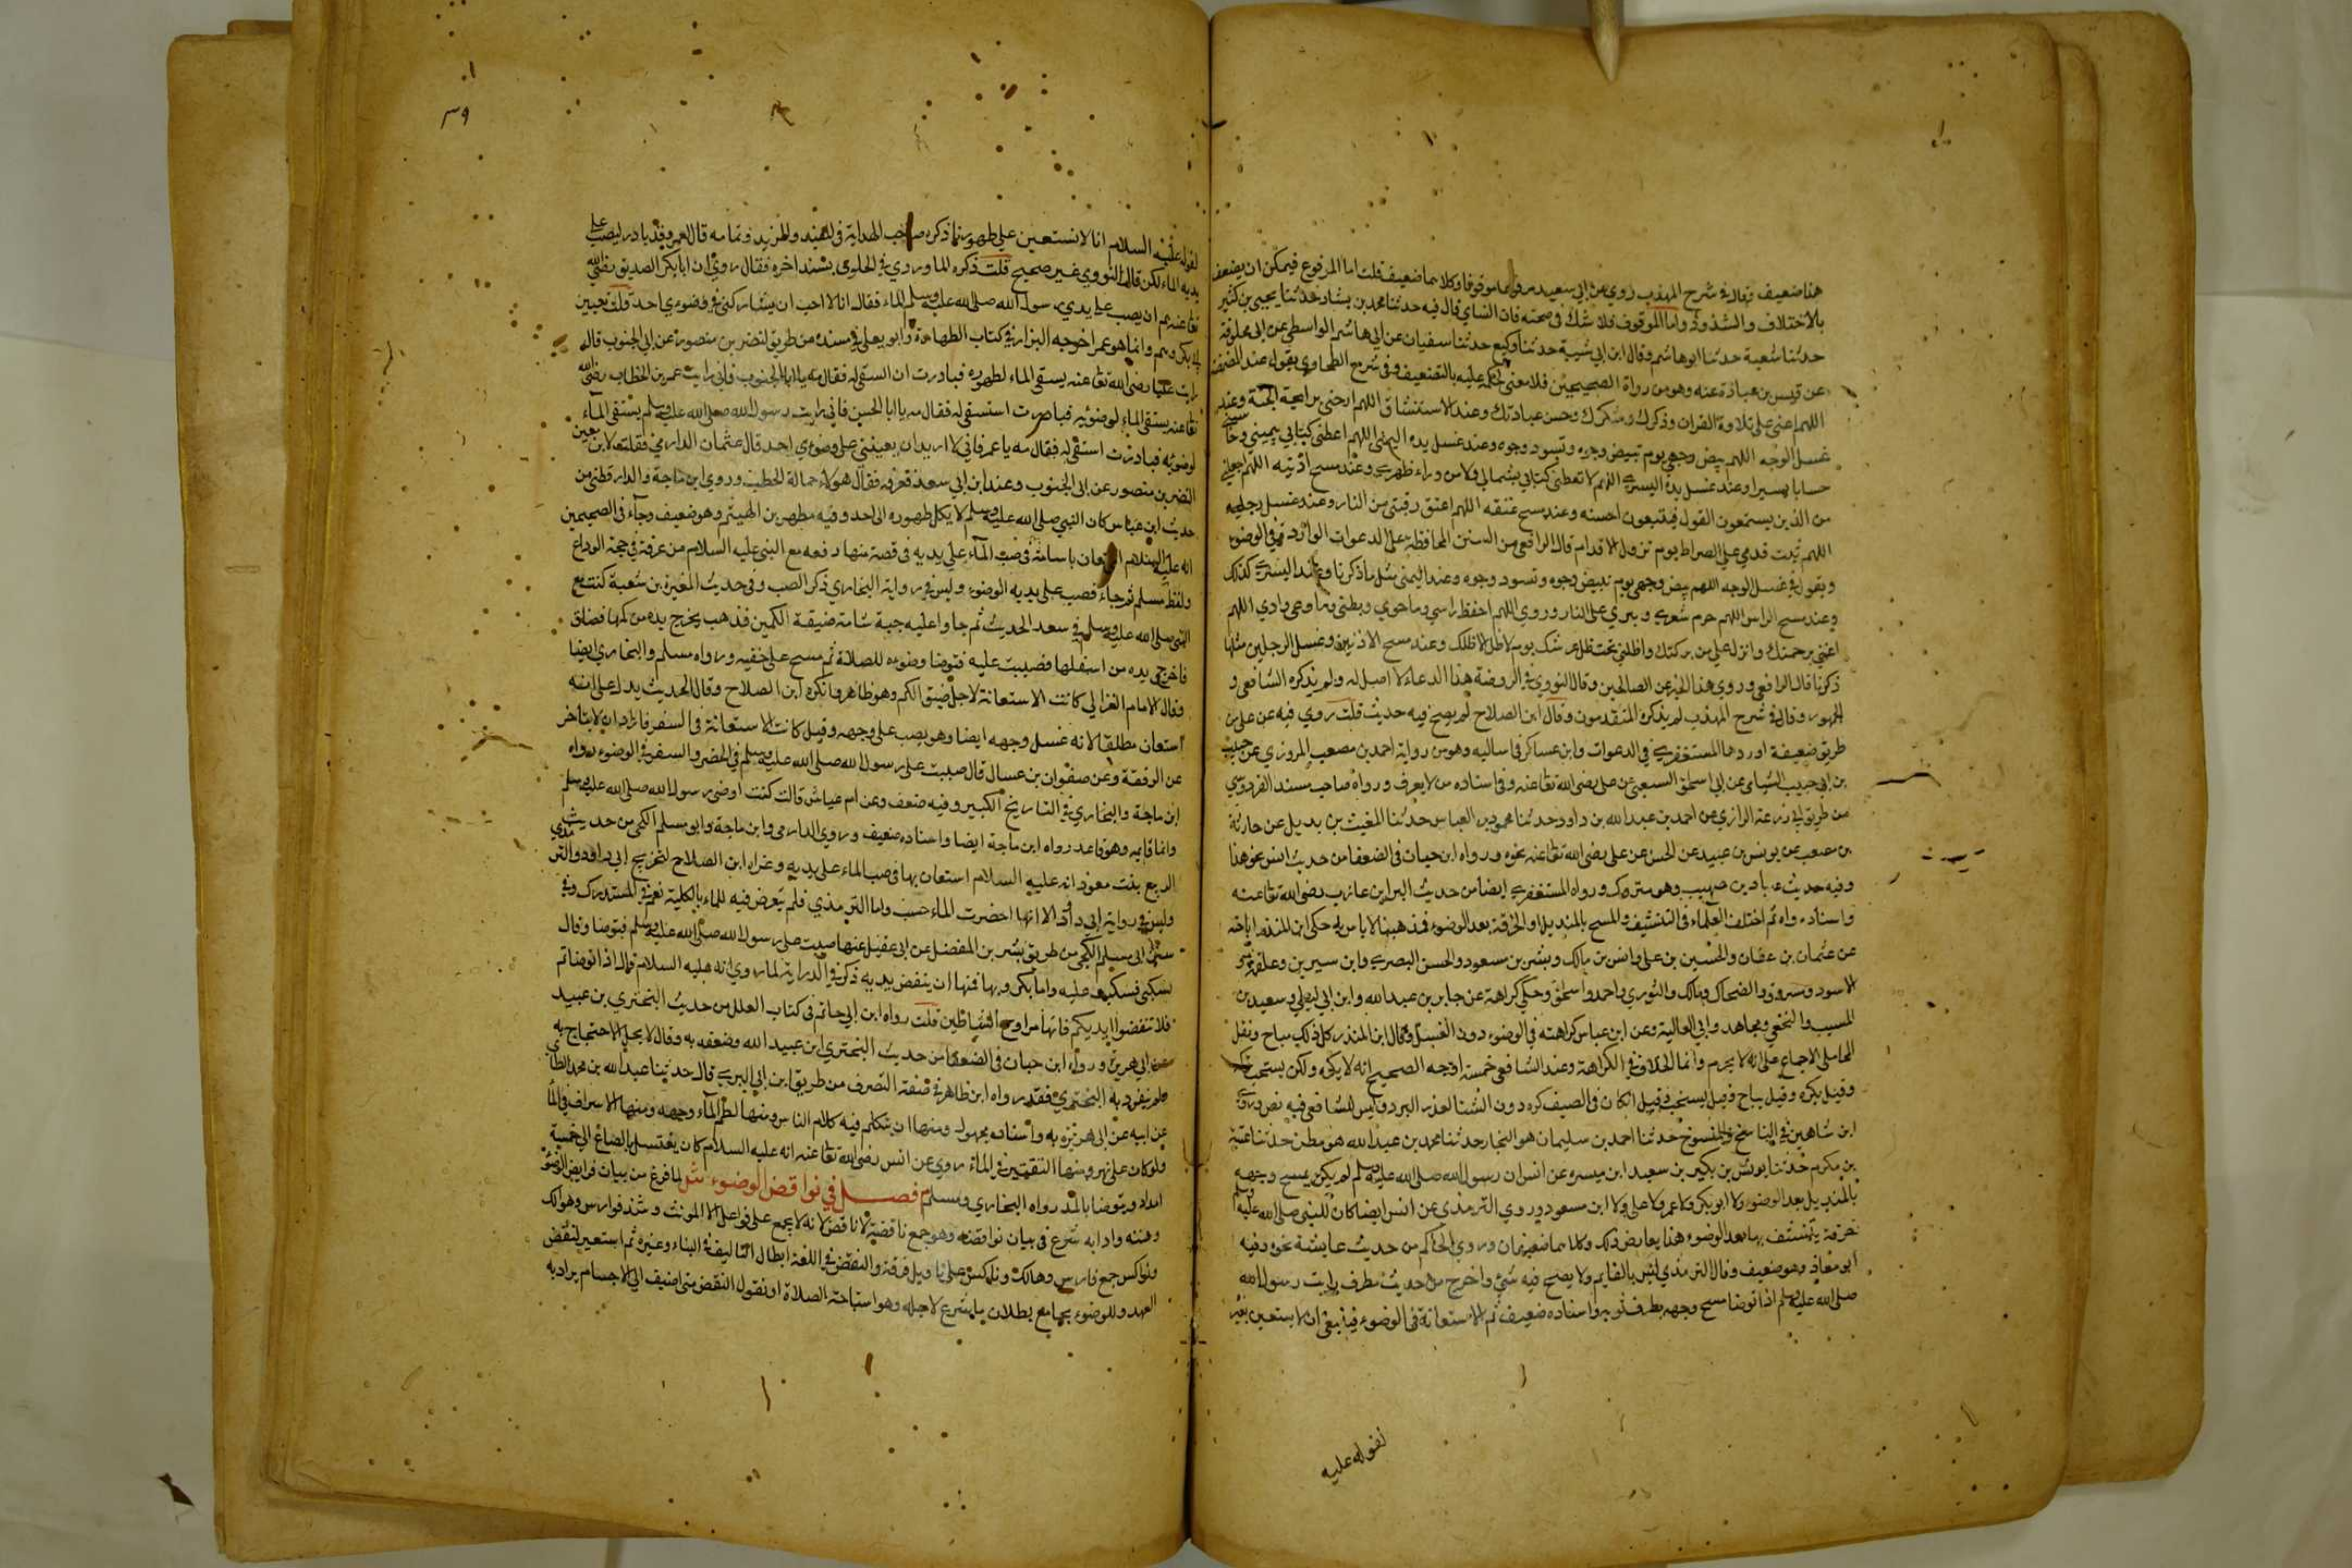 هذا ضعيف وقال في شرح المهذب روي عن ابي سعيد مرفوعا وموقوفا وكلاهما ضعيف قلت اما المرفوع فيمكن ان يضعف
بالاختلاف والشذوذ واما الموقوف فلا شك في صحته فان النساي قال فيه حدثنا محمد بن بشار حدثنا يحيى بن كثير
حدثنا شعبة حدثنا ابو هاشم وقال ابن ابي شيبة حدثنا وكيع حدثنا سفيان عن ابي هاشم الواسطي عن ابي
عن قيس بن عبادة عنه وهو من رواة الصحيحين فلا معنى لحكمه عليه بالتضعيف وفي شرح الطحاوي يقول عند المضمضة
اللهم اعني على تلاوة القران وذكرك وشكرك وحسن عبادتك وعند الاستنشاق اللهم ارحني رايحة الجنة وعند
غسل الوجه اللهم بيض وجهي يوم تبيض وجوه وتسود وجوه وعند غسل يده اليمنى اللهم اعطني كتابي بيميني وحاسبني
حسابا يسيرا وعند غسل يده اليسرى اللهم لا تعطني كتابي بشمالي ولا من وراء ظهري وعند مسح اذنيه اللهم اجعلني
من الذين يستمعون القول فيتبعون احسنه وعند مسح عنقه اللهم اعتق رقبتي من النار وعند غسل رجليه
اللهم ثبت قدمي على الصراط يوم تزول الاقدام قال الرافعي من السنن المحافظة على الدعوات الواردة في الوضوء
ويقول في غسل الوجه اللهم بيض وجهي يوم تبيض وجوه وتسود وجوه وعند اليمنى مثل ما ذكرنا وعند اليسرى كذلك
وعند مسح الراس اللهم حرم شعري وبشري على النار وروي اللهم احفظ راسي وما حوى وبطني وما وعى اللهم
اغثني برحمتك وانزل علي من بركتك واظلني تحت ظل عرشك يوم لا ظل الا ظلك وعند مسح الاذنين وغسل الرجلين مثلما
ذكرنا قال الرافعي وروي هذا الخبر عن الصالحين وقال النووي في الروضة هذا الدعاء لا اصل له ولم يذكره الشافعي و
الجمهور وقال في شرح المهذب لم يذكره المتقدمون وقال ابن الصلاح لم يصح فيه حديث قلت روي فيه عن علي من
طريق ضعيفة اوردها المستغفري في الدعوات وابن عساكر في اماليه وهو من رواية احمد بن مصعب المروزي عن حبيب
بن ابي حبيب الشيباني عن ابي اسحاق السبيعي عن علي رضي الله تعالى عنه وفي اسناده من لا يعرف ورواه صاحب مسند الفردوس
من طريق ابي زرعة الرازي عن احمد بن عبد الله بن داود حدثنا محمود بن العباس حدثنا المغيث بن بديل عن خارجة
بن مصعب عن يونس بن عبيد عن الحسن عن علي رضي الله تعالى عنه نحوه ورواه ابن حبان في الضعفاء من حديث انس نحو هذا
وفيه حديث عباد بن صهيب وهو متروك ورواه المستغفري ايضا من حديث البراء بن عازب رضي الله تعالى عنه
واسناده واه ثم اختلف العلماء في التنشيف والمسح بالمنديل او الخرقة بعد الوضوء فمذهبنا لا باس به حكى ابن المنذر اباحته
عن عثمان بن عفان والحسين بن علي وانس بن مالك وبشر بن مسعود والحسن البصري وابن سيرين وعلقمة و
الاسود ومسروق والضحاك ومالك والثوري واحمد واسحاق وحكى كراهته عن جابر بن عبد الله وابن ابي ليلى وسعيد بن
المسيب والنخعي ومجاهد وابي العالية وعن ابن عباس كراهته في الوضوء دون الغسل وقال ابن المنذر كل ذلك مباح ونقل
المحاملي الاجماع على انه لا يحرم وانما الخلاف في الكراهة وعند الشافعي خمسة اوجه الصحيح انه لا يكره ولكن يستحب تركه
وقيل يكره وقيل يباح وقيل يستحب وقيل ان كان في الصيف كره دون الشتاء لعذر البرد وليس للشافعي فيه نص وروى
ابن شاهين في الناسخ والمنسوخ حدثنا احمد بن سليمان هو النجار حدثنا محمد بن عبد الله هو مطين حدثنا عقبة
بن مكرم حدثنا يونس بن بكير بن سعيد ابن ميسره عن انس ان رسول الله صلى الله عليه وسلم لم يكن يمسح وجهه
بالمنديل بعد الوضوء ولا ابو بكر ولا عمر ولا علي ولا ابن مسعود وروى الترمذي عن انس ايضا كان للنبي صلى الله عليه وسلم
خرقة يتنشف بها بعد الوضوء هذا يعارض ذلك وكلاهما ضعيفان وروى الحاكم من حديث عايشة نحوه وفيه
ابو معاذ وهو ضعيف وقال الترمذي ليس بالقايم ولا يصح فيه شئ واخرج من حديث مطرف رايت رسول الله
صلى الله عليه وسلم اذا توضا مسح وجهه بطرف ثوبه واسناده ضعيف ثم الاستعانة في الوضوء فينبغي ان لا يستعين بغيره
لقوله عليه
٣٩
لقوله عليه السلام انا لا نستعين على طهورنا ذكره صاحب الهداية في التجنيس والمزيد وتمامه قاله لعمر وقد بادر ليصب على
يديه الماء لكن قال النووي غير صحيح قلت ذكره الماوردي في الحاوي بسند اخره فقال روي ان ابا بكر الصديق رضي الله
تعالى عنه هم ان يصب على يدي رسول الله صلى الله عليه وسلم الماء فقال انا لا احب ان يشاركني في وضوءي احد قلت تعيين
ابي بكر وهم وانما هو عمر اخرجه البزار في كتاب الطهارة وابو يعلى في مسنده من طريق النضر بن منصور عن ابي الجنوب قال
رايت عليا رضي الله تعالى عنه يستقي الماء لطهوره فبادرت ان استقي له فقال مه يا ابا الجنوب فاني رايت عمر بن الخطاب رضي الله
تعالى عنه يستقي الماء لوضوئه فبادرت استسقي له فقال مه يا ابا الحسن فاني رايت رسول الله صلى الله عليه وسلم يستقي الماء
لوضوئه فبادرت استقي له فقال مه يا عمر فاني لا اريد ان يعينني على وضوءي احد قال عثمان الدارمي فقلت لابن معين
النضر بن منصور عن ابي الجنوب وعنه ابن ابي سعد تعرفه فقال هؤلاء حمالة الحطب وروى ابن ماجة والدارقطني من
حديث ابن عباس كان النبي صلى الله عليه وسلم لا يكل طهوره الى احد وفيه مطهر بن الهيثم وهو ضعيف وجاء في الصحيحين
انه عليه السلام استعان باسامة في صب الماء على يديه في قصة منها دفعه مع النبي عليه السلام من عرفة في حجة الوداع
ولفظ مسلم ثم جاء فصب على يديه الوضوء وليس في رواية البخاري ذكر الصب وفي حديث المغيرة بن شعبة كنت مع
النبي صلى الله عليه وسلم في سعد الحديث ثم جاء وعليه جبة شامة ضيقة الكمين فذهب يخرج يده من كمها فضاق
فاخرج يده من اسفلها فصببت عليه فتوضا وضوءه للصلاة ثم مسح على خفيه ورواه مسلم والبخاري ايضا
وقال الامام الغزالي كانت الاستعانة لاجل ضيق الكم وهو ظاهر وانكره ابن الصلاح وقال الحديث يدل على انه
استعان مطلقا لانه غسل وجهه ايضا وهو يصب على وجهه وقيل كانت الاستعانة في السفر فاراد ان لا يتاخر
عن الرفقة وعن صفوان بن عسال قال صببت على رسول الله صلى الله عليه وسلم في الحضر والسفر في الوضوء رواه
ابن ماجة والبخاري في التاريخ الكبير وفيه ضعف وعن ام عياش قالت كنت اوضئ رسول الله صلى الله عليه وسلم
وانا قايمه وهو قاعد رواه ابن ماجة ايضا واسناده ضعيف وروى الدارمي وابن ماجة وابو مسلم الكجي من حديث
الربيع بنت معوذ انه عليه السلام استعان بها في صب الماء على يديه وعزاه ابن الصلاح لتخريج ابي داود والترمذي
وليس في رواية ابي داود الا انها احضرت الماء حسب واما الترمذي فلم يتعرض فيه للماء بالكلية نعم في المستدرك وفي
سنن ابي مسلم الكجي من طريق بشر بن المفضل عن ابي عقيل عنها صببت على رسول الله صلى الله عليه وسلم فتوضا وقال
اسكبي فسكبت عليه واما مكروهها فمنها ان ينفض يديه ذكره في الدراية لما روي انه عليه السلام قال اذا توضاتم
فلا تنفضوا ايديكم فانها مراوح الشياطين قلت رواه ابن ابي حاتم في كتاب العلل من حديث البختري بن عبيد
عن ابي هريرة ورواه ابن حبان في الضعفاء من حديث البختري ابن عبيد الله وضعفه به وقال لا يحل الاحتجاج به
ولم ينفرد به البختري فقد رواه ابن طاهر في صفة التصرف من طريق ابن ابي السري قال حدثنا عبد الله بن محمد الطائي
عن ابيه عن ابي هريرة به واسناده مجهول ومنها ان يتكلم فيه كلام الناس ومنها لطم الماء وجهه ومنها الاسراف في الماء
ولو كان على نهر ومنها التقتير في الماء روي عن انس رضي الله تعالى عنه انه عليه السلام كان يغتسل بالصاع الى خمسة
امداد ويتوضا بالمد رواه البخاري ومسلم م فصل في نواقض الوضوء ش لما فرغ من بيان فرايض الوضوء
وسننه وادابه شرع في بيان نواقضه وهو جمع ناقضة لا ناقض لانه لا يجمع على فواعل الا المونث وشذ فوارس وهوالك
ونواكس جمع فارس وهالك وناكس على تاويل فرقة والنقض في اللغة ابطال التاليف في البناء وغيره ثم استعير لنقض
العهد وللوضوء بجامع بطلان ما شرع لاجله وهو استباحة الصلاة او نقول النقض متى اضيف الى الاجسام يراد به